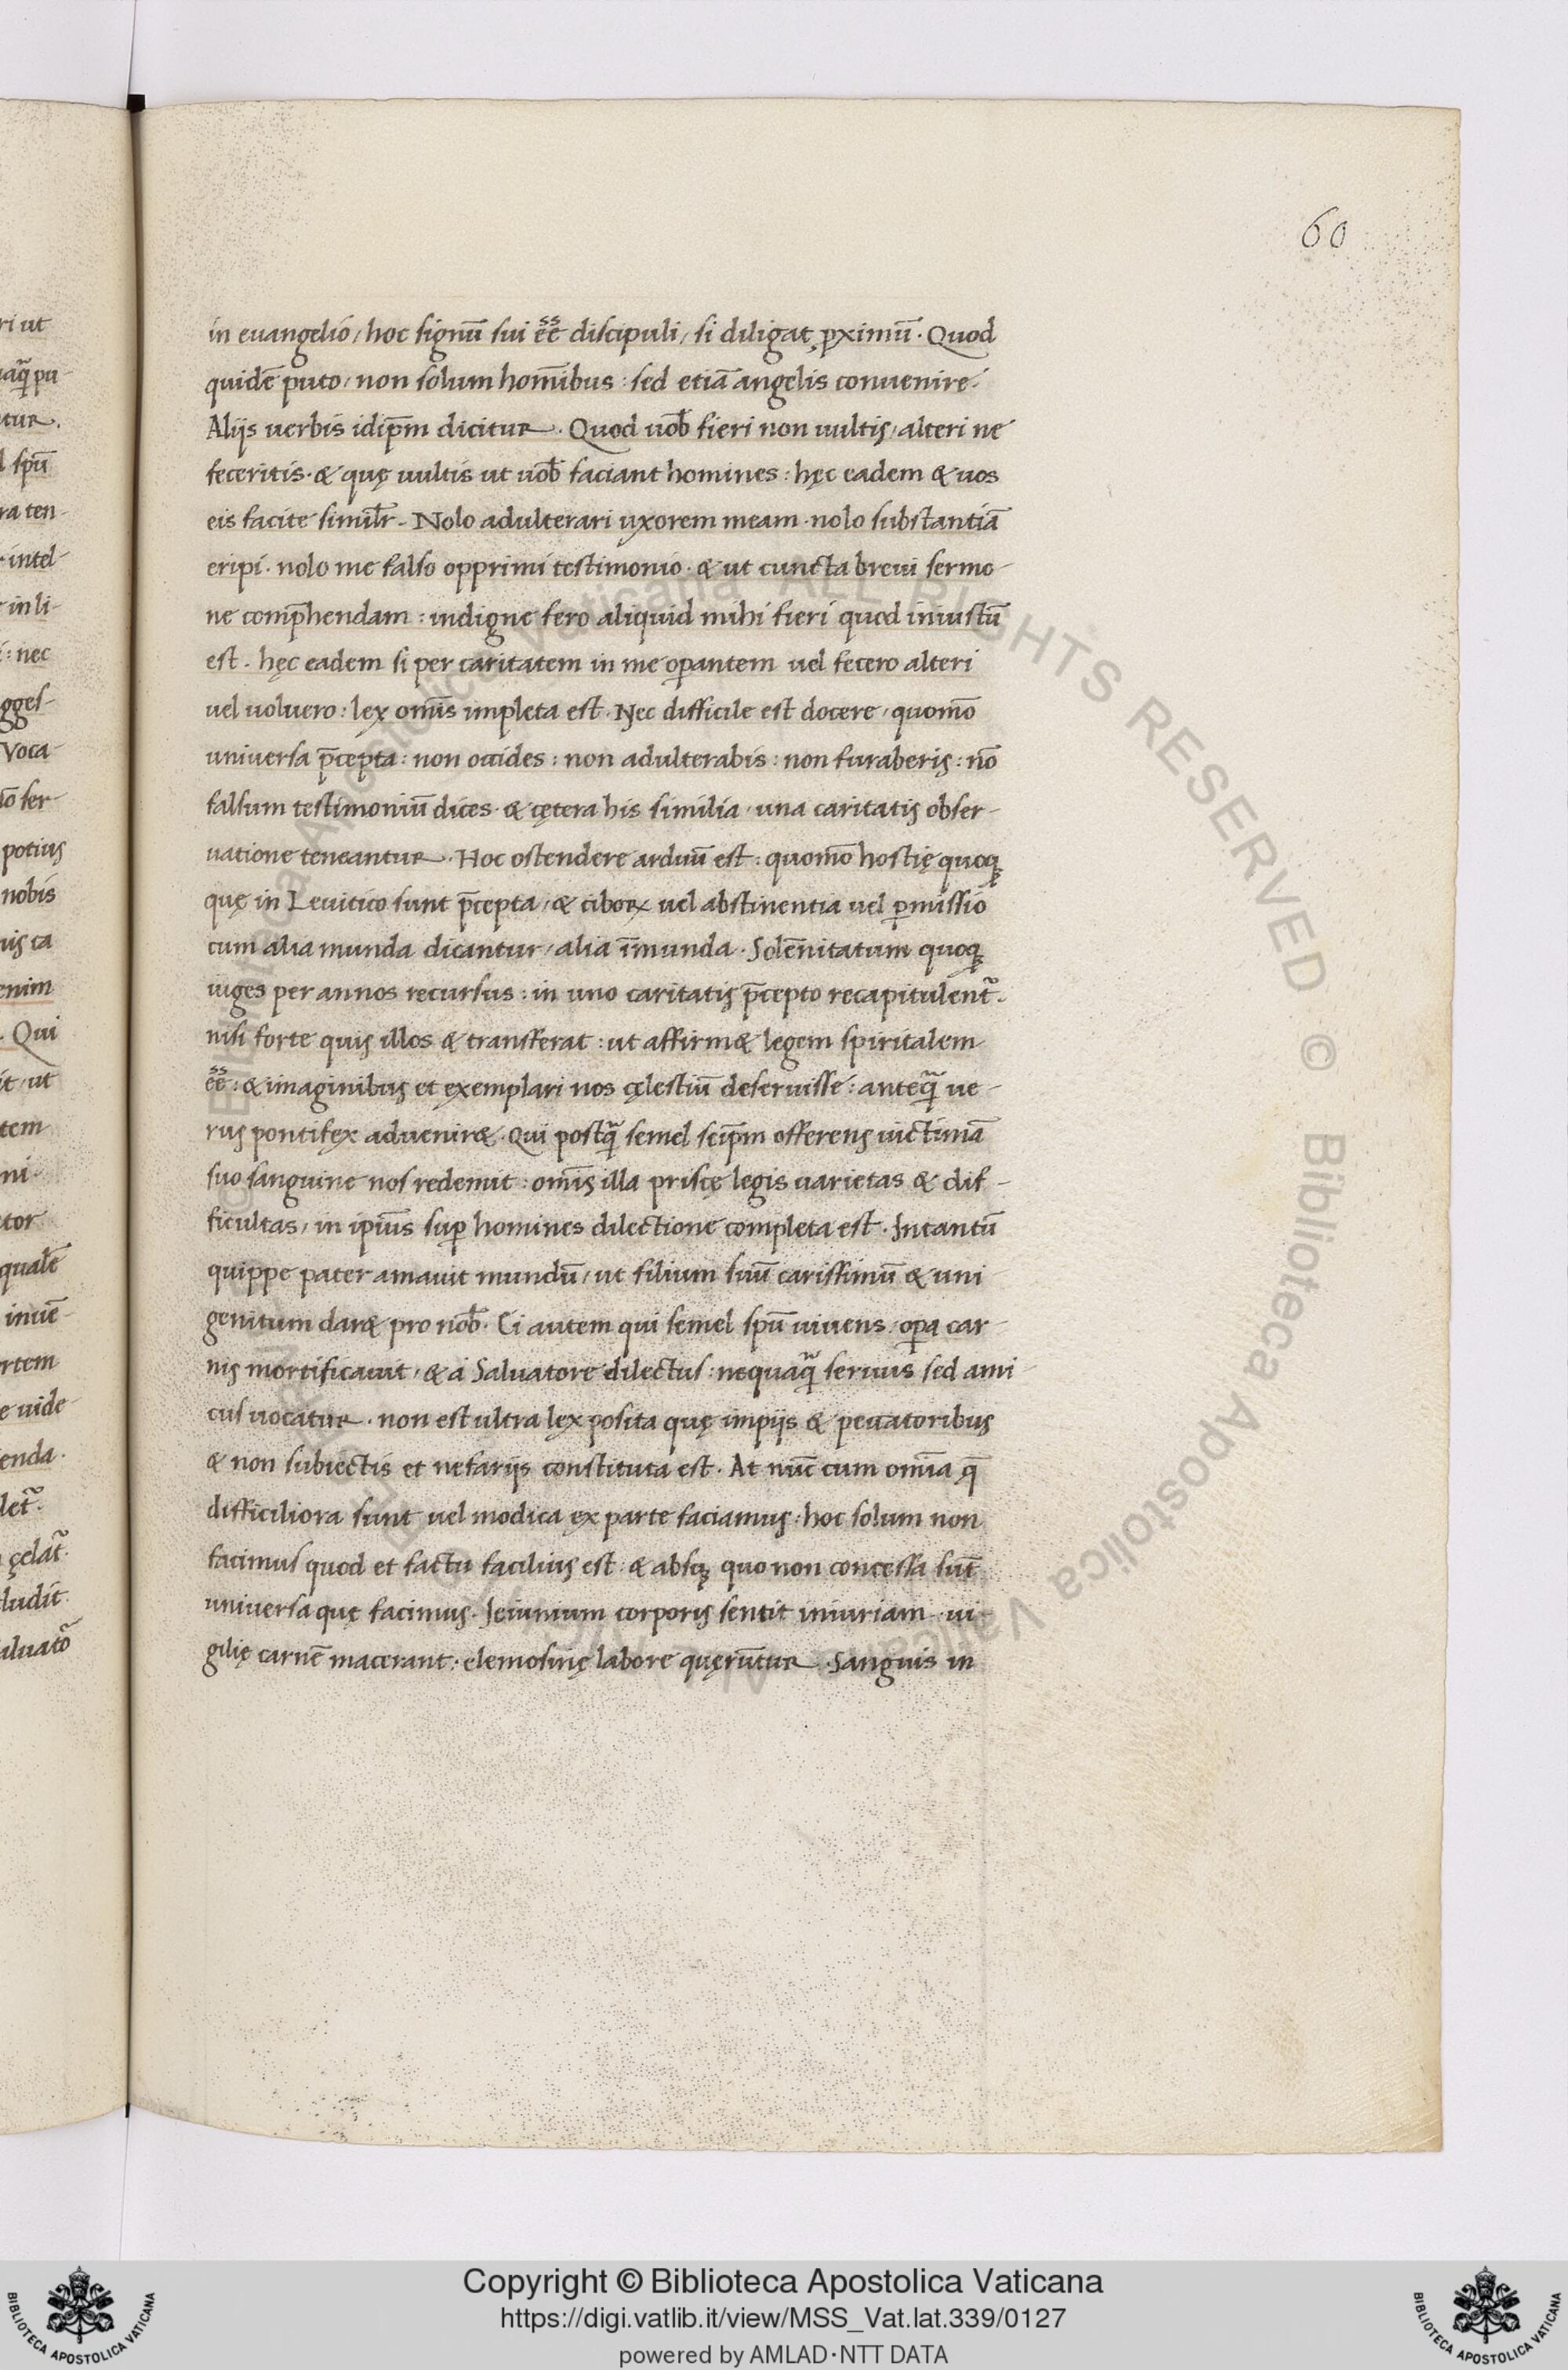 60
in euangelio / hoc signū sui eē̃ discipuli / si diligat ꝓximū · Quod
quidē puto / non solum hom̄ibus : sed etiā angelis conuenire ·
Alijs uerbis idip̄m dicitur · Quod uob̄ fieri non uultis / alteri ne
feceritis · & quę uultis ut uob̄ faciant homines : hęc eadem & uos
eis facite simil̄r · Nolo adulterari uxorem meam · nolo substantiā
eripi · nolo me falso opprimi testimonio · & ut cuncta breui sermo-
ne comp̄hendam : indigne fero aliquid mihi fieri quod iniustū
est · hęc eadem si per caritatem in me oꝑantem uel fecero alteri
uel voluero : lex om̄is impleta est · Nec difficile est docere / quom̄o
universa p̄cepta : non occides : non adulterabis : non furaberis : nō
falsum testimoniū dices · & cętera his similia / una caritatis obser-
uatione teneantur · Hoc ostendere arduū est : quom̄o hostię quoqꝫ
quę in Leuitico sunt p̄cepta / & ciboꝝ uel abstinentia uel ꝑmissio
cum alia munda dicantur / alia īmunda · Solēnitatum quoqꝫ
iuges per annos recursus : in uno caritatis p̄cepto recapitulent̃ ·
nisi forte quis illos & transferat : ut affirm& legem spiritalem
eē̃ : & imaginibus et exemplari nos cęlestiū deseruisse : anteq̃ ue-
rus pontifex aduenir& · Qui postq̃ semel seip̄m offerens uictimā
suo sanguine nos redemit : om̄is illa priscę legis uarietas & dif-
ficultas / in ipiūs suꝑ homines dilectione completa est · Intantū
quippe pater amauit mundū / ut filium suū carissimū & uni
genitum dar& pro nob̄ · Ci autem qui semel spū uiuens / oꝑa car-
nis mortificauit / & a Saluatore dilectus : nequaq̃ seruus sed ami-
cus uocatur · non est ultra lex posita quę impijs & peccatoribus
& non subiectis et nefarijs constituta est · At nūc cum om̄ia q̄
difficiliora sunt uel modica ex parte faciamus : hoc solum non
facimus quod et factu facilius est · & absqꝫ quo non concessa sūt
universa quę facimus · Ieiunium corporis sentit iniuriam · ui-
gilię carnē macerant · elemosinę labore quęrūtur · Sanguis in
Copyright © Biblioteca Apostolica Vaticana
https://digi.vatlib.it/view/MSS_Vat.lat.339/0127
powered by AMLAD·NTT DATA